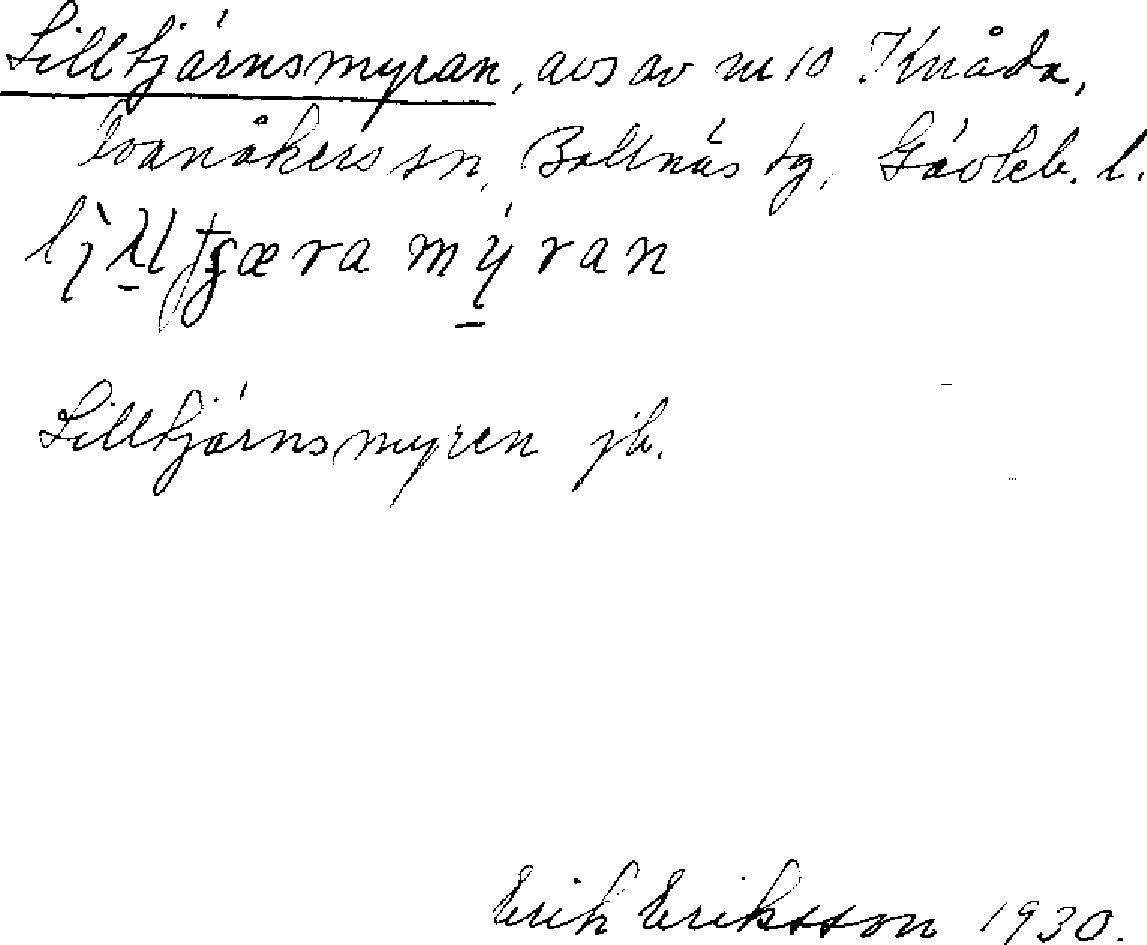 Lilltjärnsmyran, avs av nr 10 Knåda,
Ovanåkers sn, Bollnäs tg, Gävleb. l.
mýran
Lilltjärnsmyren jb.
Erik Eriksson 1930.